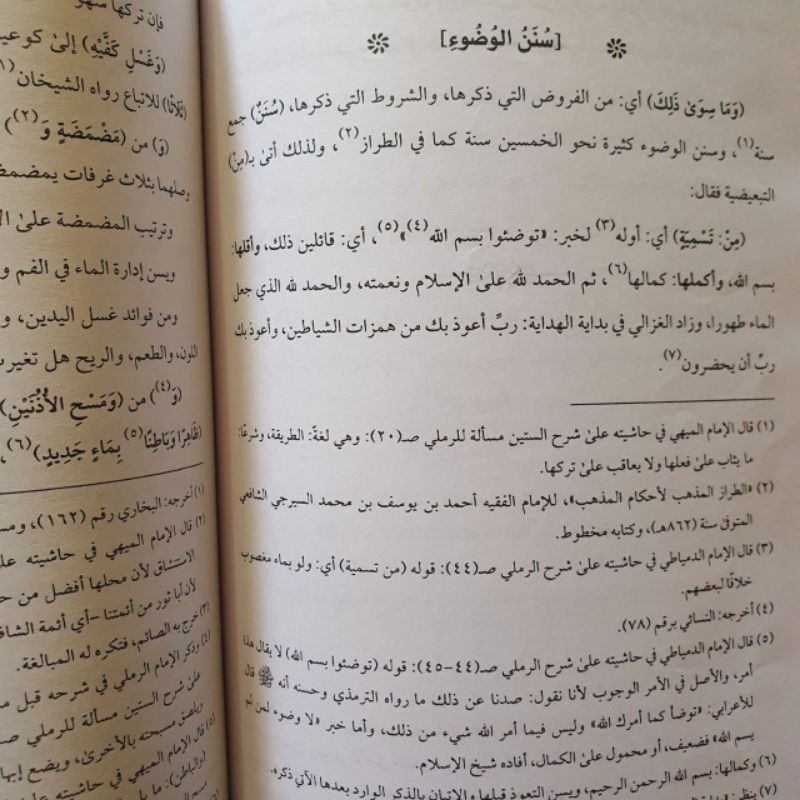 [سُنَنُ الوُضُوءِ]
(وَمَا سِوَىٰ ذَلِكَ) أي: من الفروض التي ذكرها، والشروط التي ذكرها، (سُنَنٌ) جمع
سنة(١)، وسنن الوضوء كثيرة نحو الخمسين سنة كما في الطراز(٢)، ولذلك أتىٰ بـ(مِنْ)
التبعيضية فقال:
(مِنْ: تَسْمِيَةٍ) أي: أوله(٣) لخبر: «توضئوا بسم الله(٤)»(٥)، أي: قائلين ذلك، وأقلها:
بسم الله، وأكملها: كمالها(٦)، ثم الحمد لله علىٰ الإسلام ونعمته، والحمد لله الذي جعل
الماء طهورا، وزاد الغزالي في بداية الهداية: ربِّ أعوذ بك من همزات الشياطين، وأعوذ بك
ربِّ أن يحضرون(٧).
(١) قال الإمام الميهي في حاشيته علىٰ شرح الستين مسألة للرملي صـ(٢٠): وهي لغةً: الطريقة، وشرعًا:
ما يثاب علىٰ فعلها ولا يعاقب علىٰ تركها.
(٢) «الطراز المذهب لأحكام المذهب»، للإمام الفقيه أحمد بن يوسف بن محمد السيرجي الشافعي
المتوفىٰ سنة (٨٦٢هـ)، وكتابه مخطوط.
(٣) قال الإمام الدمياطي في حاشيته علىٰ شرح الرملي صـ(٤٤): قوله (من تسمية) أي: ولو بماء مغصوب
خلافًا لبعضهم.
(٤) أخرجه: النسائي برقم (٧٨).
(٥) قال الإمام الدمياطي في حاشيته علىٰ شرح الرملي صـ(٤٤-٤٥): قوله (توضئوا بسم الله) لا يقال هذا
أمر، والأصل في الأمر الوجوب لأنا نقول: صدنا عن ذلك ما رواه الترمذي وحسنه أنه ﷺ قال
للأعرابي: «توضأ كما أمرك الله» وليس فيما أمر الله شيء من ذلك، وأما خبر «لا وضوء لمن لم
يسم الله» فضعيف، أو محمول علىٰ الكمال، أفاده شيخ الإسلام.
(٦) وكمالها: بسم الله الرحمن الرحيم، ويسن التعوذ قبلها والإتيان بالذكر الوارد بعدها الآتي ذكره.
(٧) ينظر:
فإن تركها
(وَغَسْلِ كَفَّيْهِ) إلىٰ
(ثَلَاثًا) للاتباع رواه الشيخان
(وَ) من (مَضْمَضَةٍ وَ(٢)
وصلهما بثلاث غرفات
وترتيب المضمضة علىٰ
ويسن إدارة الماء في الفم
ومن فوائد غسل اليدين،
اللون، والطعم، والريح هل
(وَ(٤)) من (وَمَسْحِ الأُذُنَيْنِ)
(ظَاهِرًا وَبَاطِنًا(٥) بِمَاءٍ جَدِيدٍ)(٦)،
(١) أخرجه: البخاري رقم (١٦٢)،
(٢) قال الإمام الميهي في حاشيته
الاستنشاق لأن محلها أفضل من
لأن أبا ثور من أئمتنا -أي أئمة
(٣) خرج به الصائم، فتكره له المبالغة.
(٤) وذكر الإمام الرملي في شرحه قبل
علىٰ شرح الستين مسألة للرملي
ويلصق مسبحته بالأخرىٰ، ويضع
(٥) قال الإمام الميهي في حاشيته